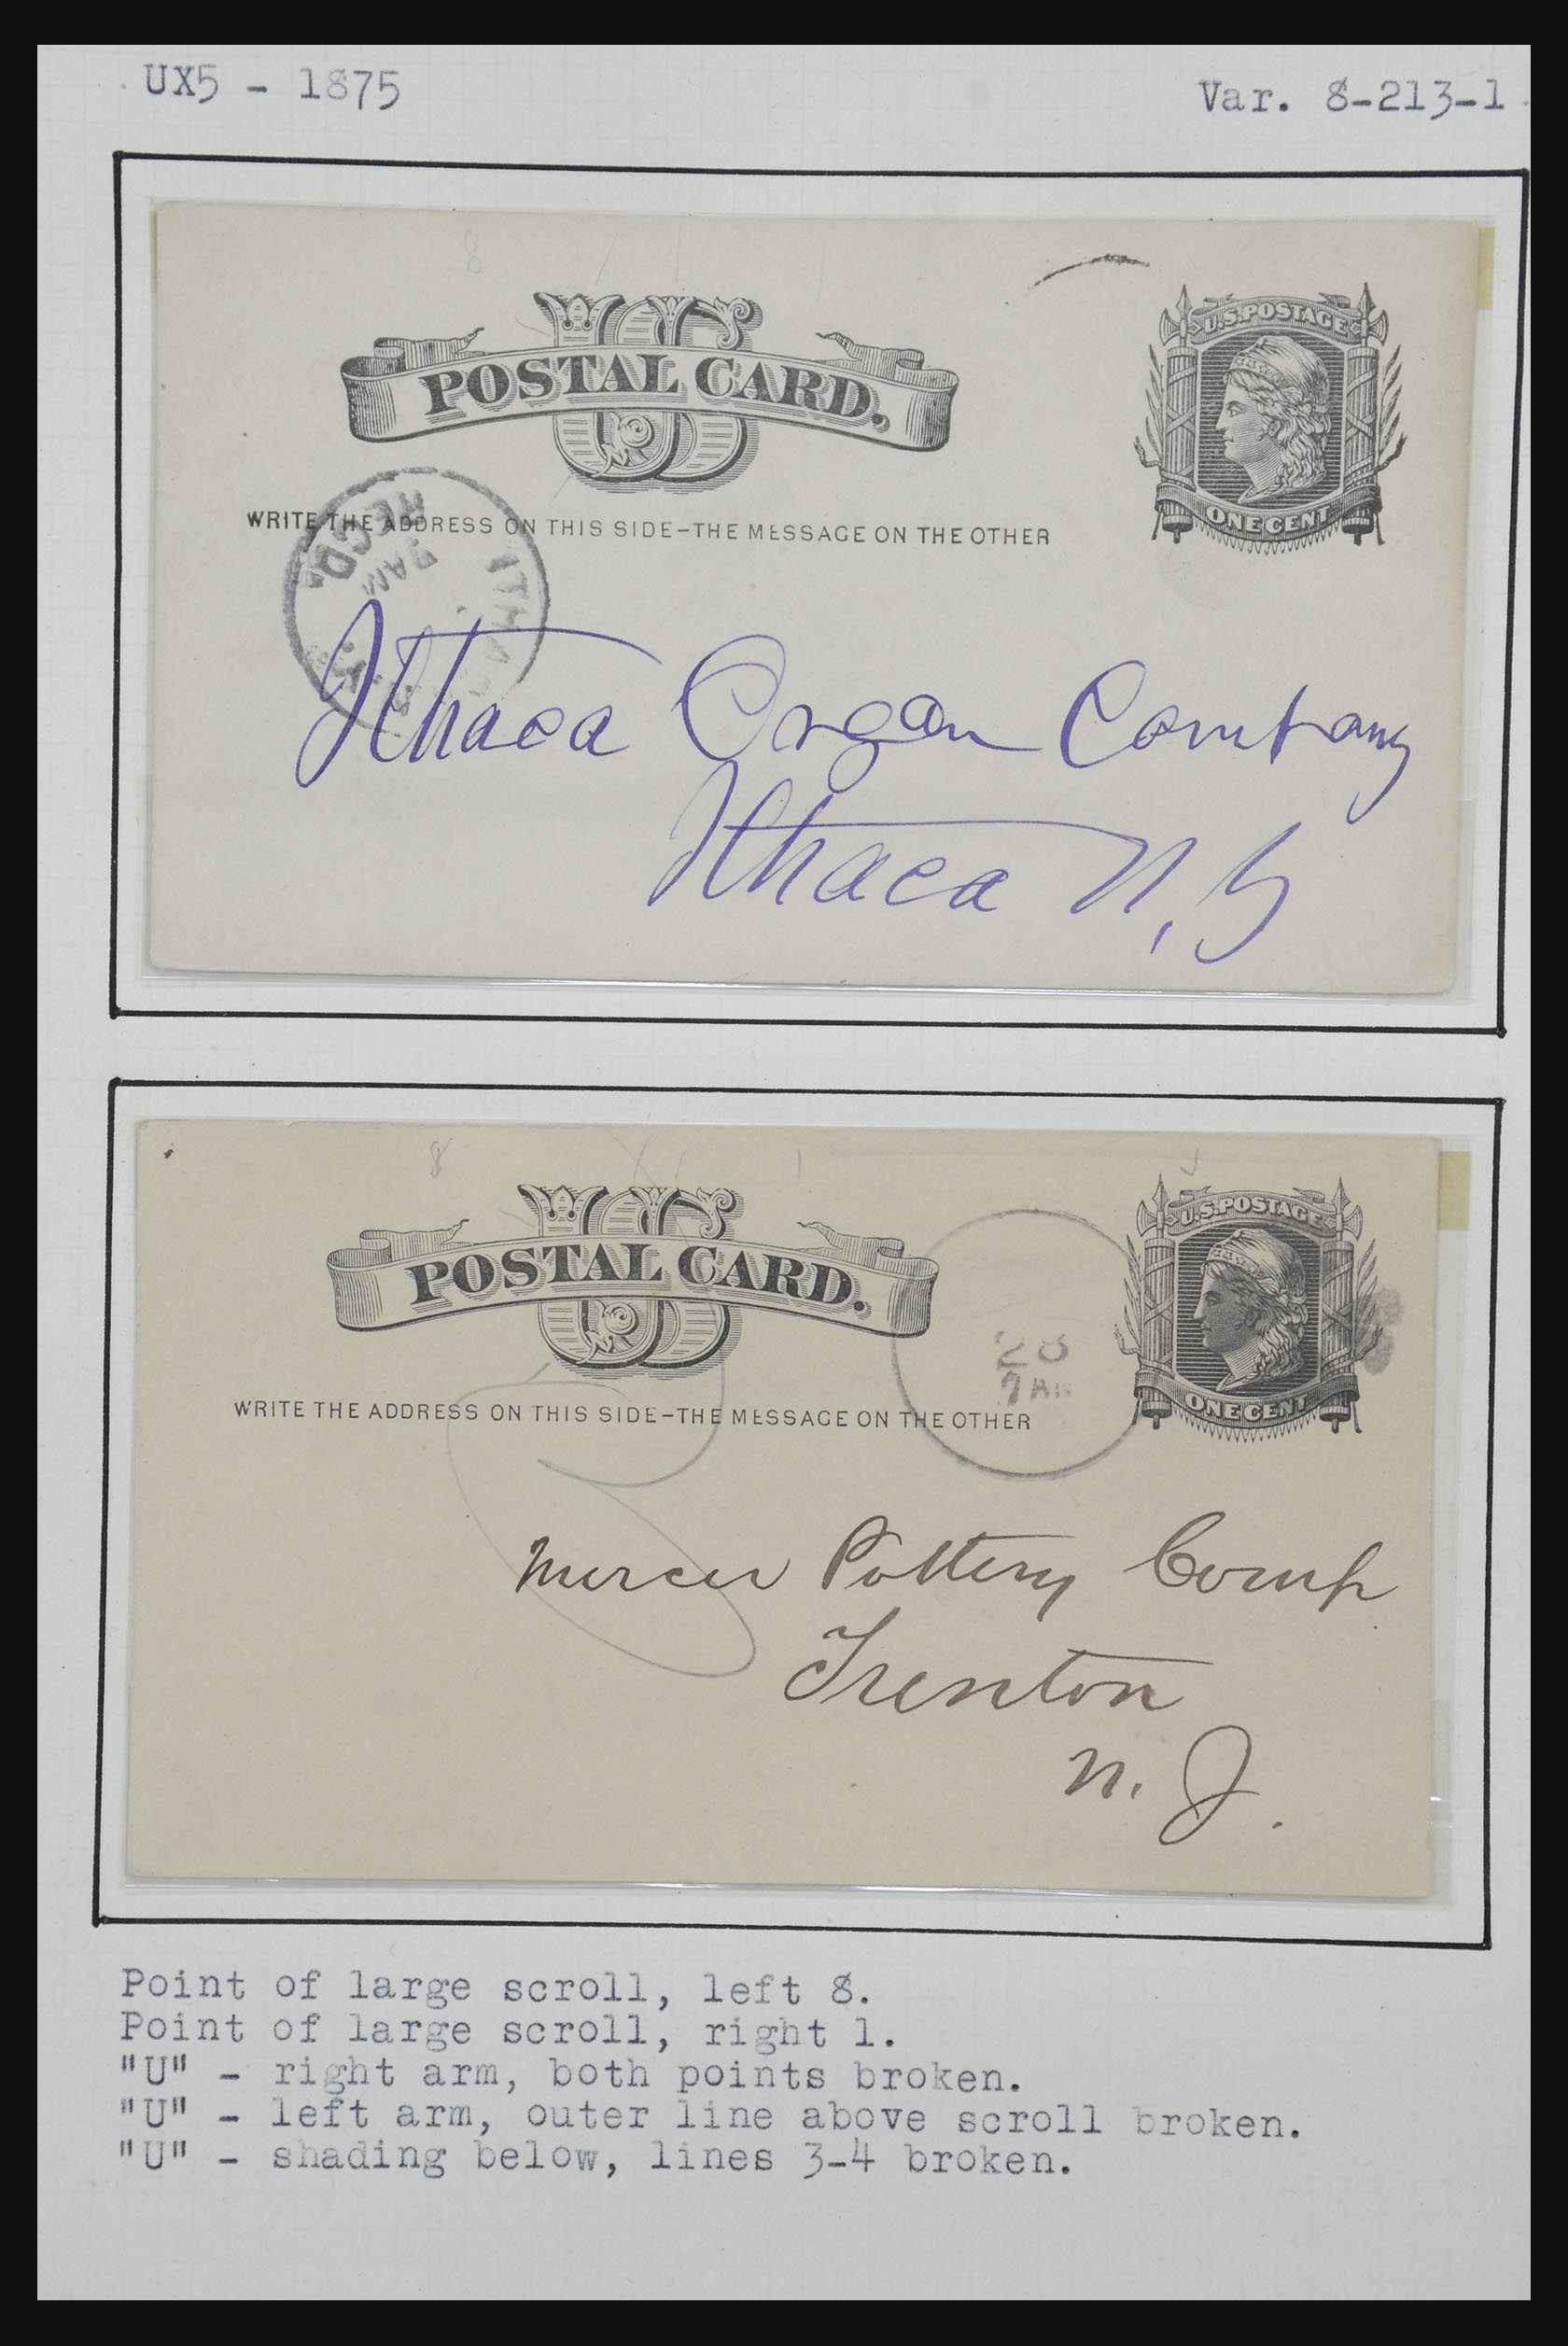 UX5 - 1875
Var. 8-213-1
8
US
POSTAL CARD.
U.S. POSTAGE
ONE CENT
WRITE THE ADDRESS ON THIS SIDE-THE MESSAGE ON THE OTHER
RECD.
9AM
Ithaca Organ Company
Ithaca N, Y
8
US
POSTAL CARD.
U.S. POSTAGE
ONE CENT
28
7 AM
WRITE THE ADDRESS ON THIS SIDE-THE MESSAGE ON THE OTHER
Mercer Pottery Comp
Trenton
N. J.
Point of large scroll, left 8.
Point of large scroll, right 1.
"U" - right arm, both points broken.
"U" - left arm, outer line above scroll broken.
"U" - shading below, lines 3-4 broken.